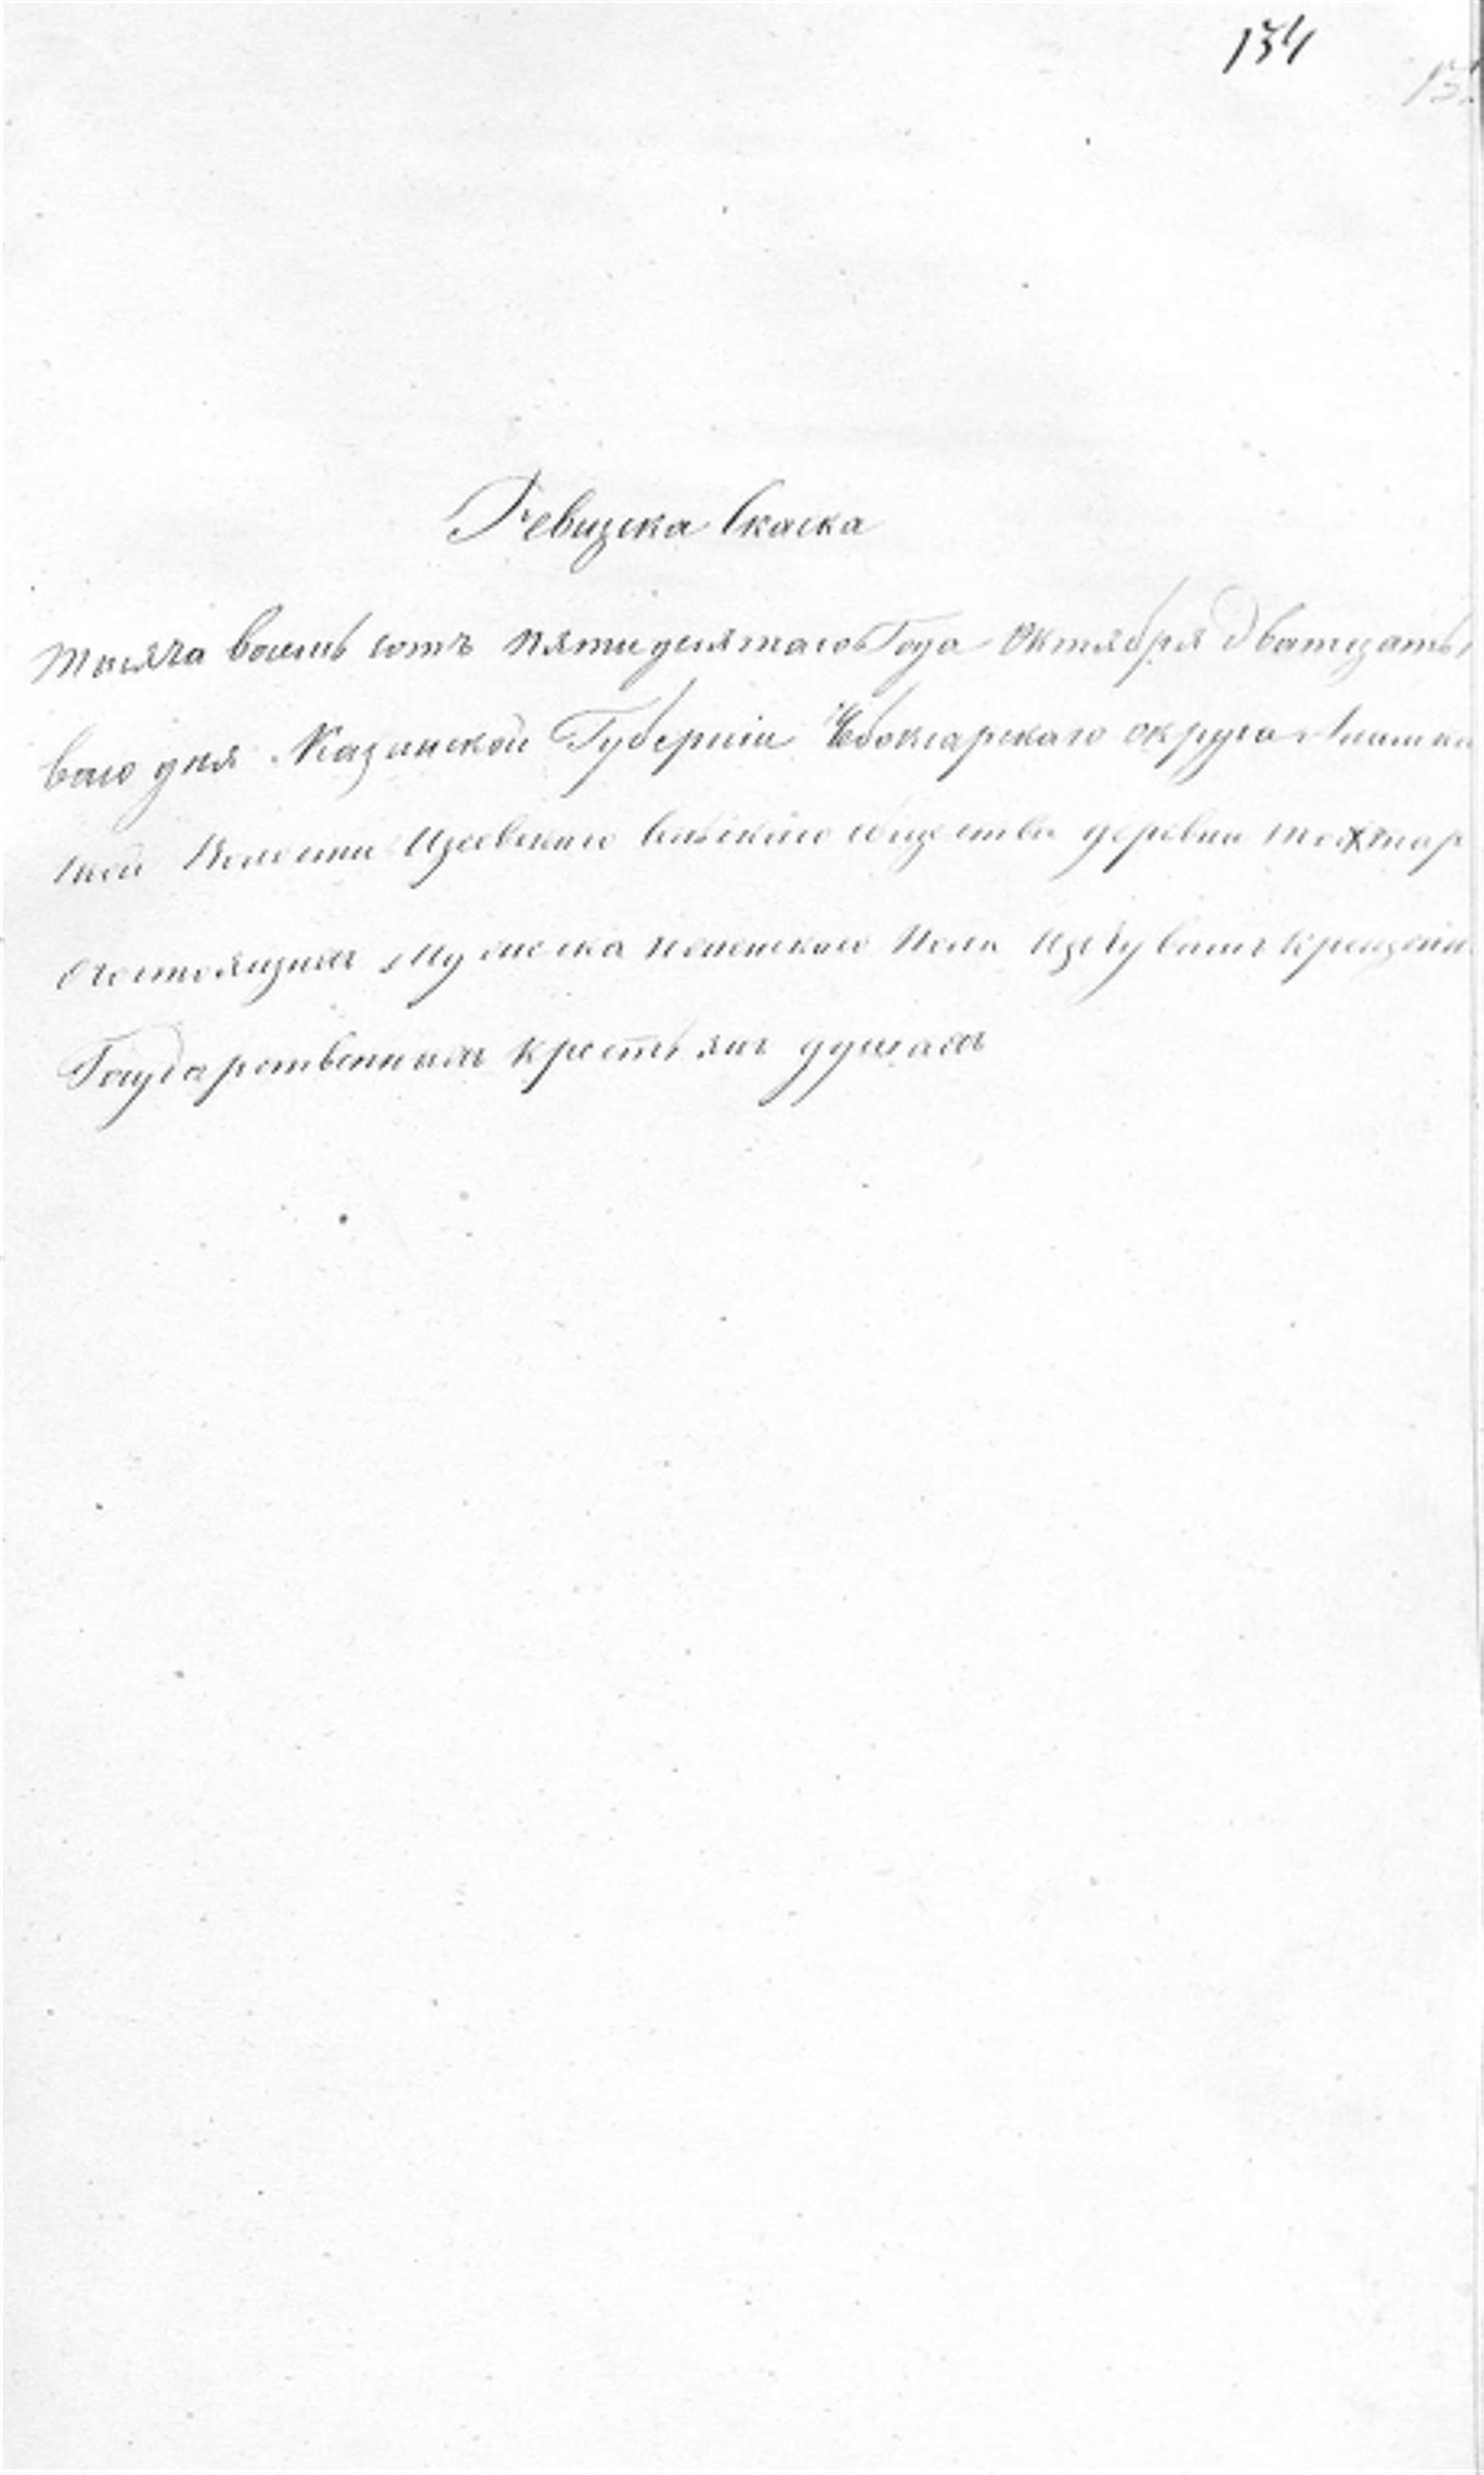 134
Ревизска Скаска
тысяча восемь сотъ пятидесятаго Года Октября Дватцать
ваго дня Казанской Губернии Чебоксарскаго округа
ской Волости сельскаго общества деревни
состоящимъ Мужеска женскаго пола изъ Чувашъ крещени
Государственнымъ крестьянъ душамъ